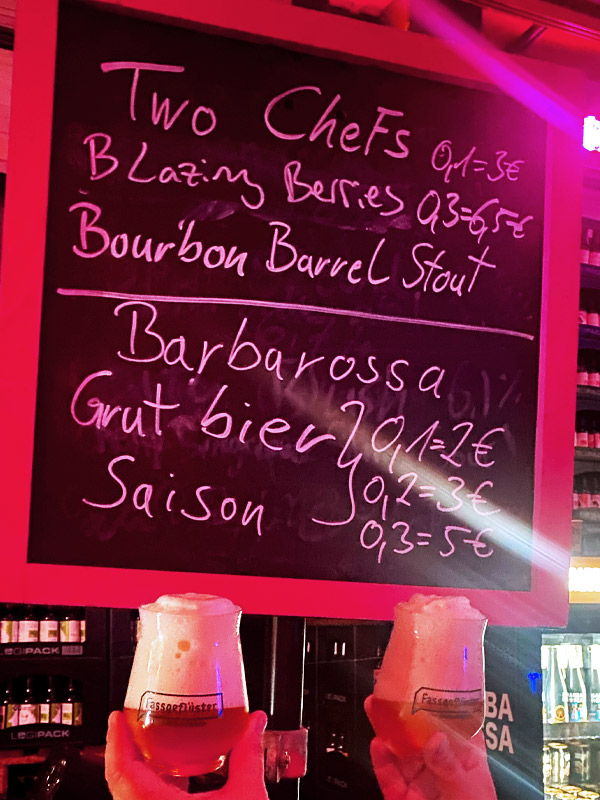 Two Chefs
0,1=3€
Blazing Berries 0,3=6,5€
Bourbon Barrel Stout
Barbarossa
Grut bier } 0,1=2€
0,2=3€
Saison
0,3=5€
LOGIPACK
LOGIPACK
Fassgeflüster
Fassgeflüster
BA
SA